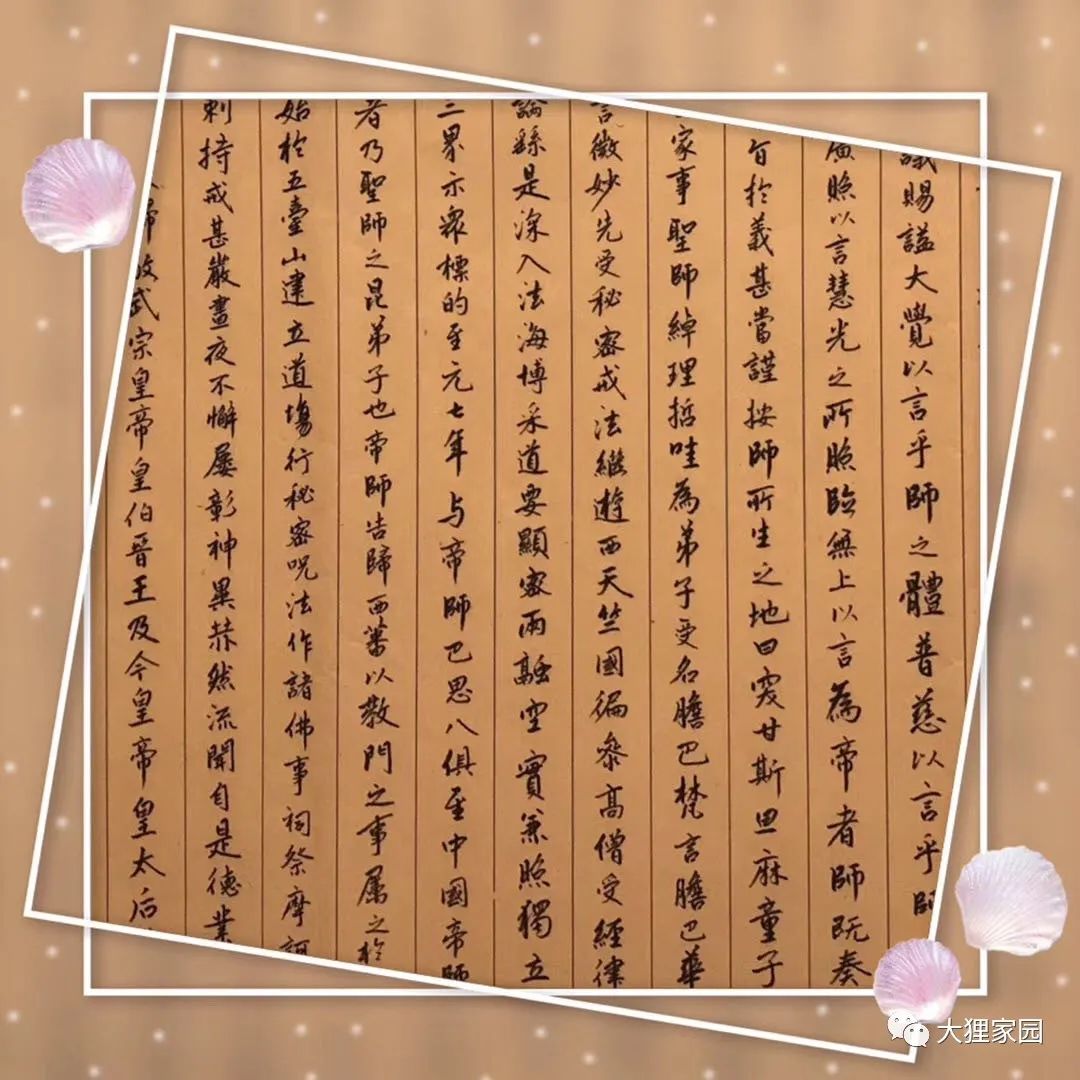 議賜謚大覺以言乎師之體普慈以言乎師
廣照以言慧光之所照臨無上以言為帝者師既奏
旨於義甚當謹按師所生之地曰突甘斯旦麻童子
家事聖師綽理哲哇為弟子受名膽巴梵言膽巴華
言微妙先受秘密戒法繼遊西天竺國徧參高僧受經律
論繇是深入法海博采道要顯密兩融空實兼照獨立
三界示眾標的至元七年与帝師巴思八俱至中國帝師
者乃聖師之昆弟子也帝師告歸西蕃以教門之事屬之於
始於五臺山建立道場行秘密呪法作諸佛事祠祭摩訶
剌持戒甚嚴晝夜不懈屢彰神異赫然流聞自是德業
帝故武宗皇帝皇伯晉王及今皇帝皇太后
大狸家园